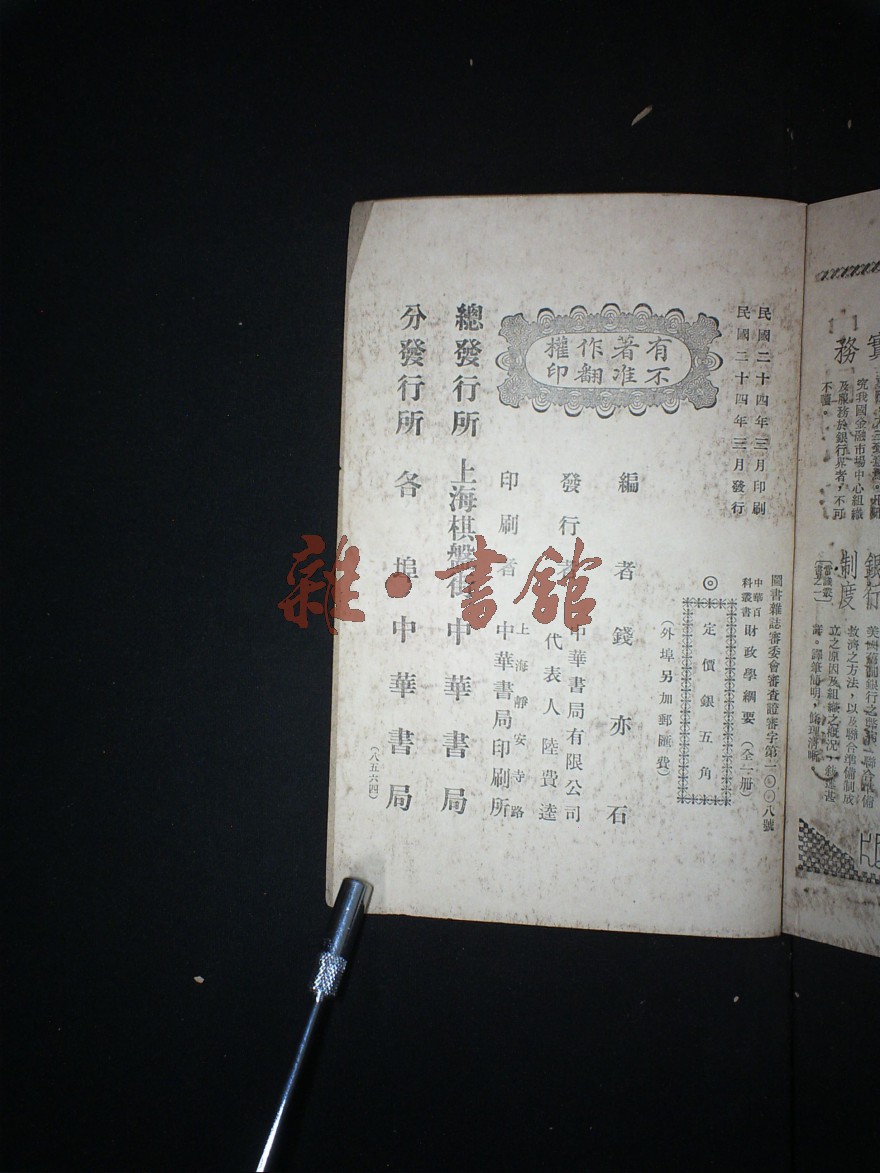 民國二十四年三月印刷
民國二十四年三月發行
有著作權
不准翻印
圖書雜誌審委會審查證審字第一〇〇八號
中華百科叢書 財政學綱要(全一冊)
◎定價銀五角
(外埠另加郵匯費)
編者 錢亦石
發行者 中華書局有限公司
代表人 陸費逵
印刷者 上海靜安寺路
中華書局印刷所
總發行所 上海棋盤街 中華書局
分發行所 各埠 中華書局
(八五六四)
雜·書館
務
究我國金融市場中心組織
及服務於銀行界者,不可
不讀。
銀行
制度
救濟之方法,以及聯合準備制成
立之原因及組織之概況
譯筆簡明,條理清晰